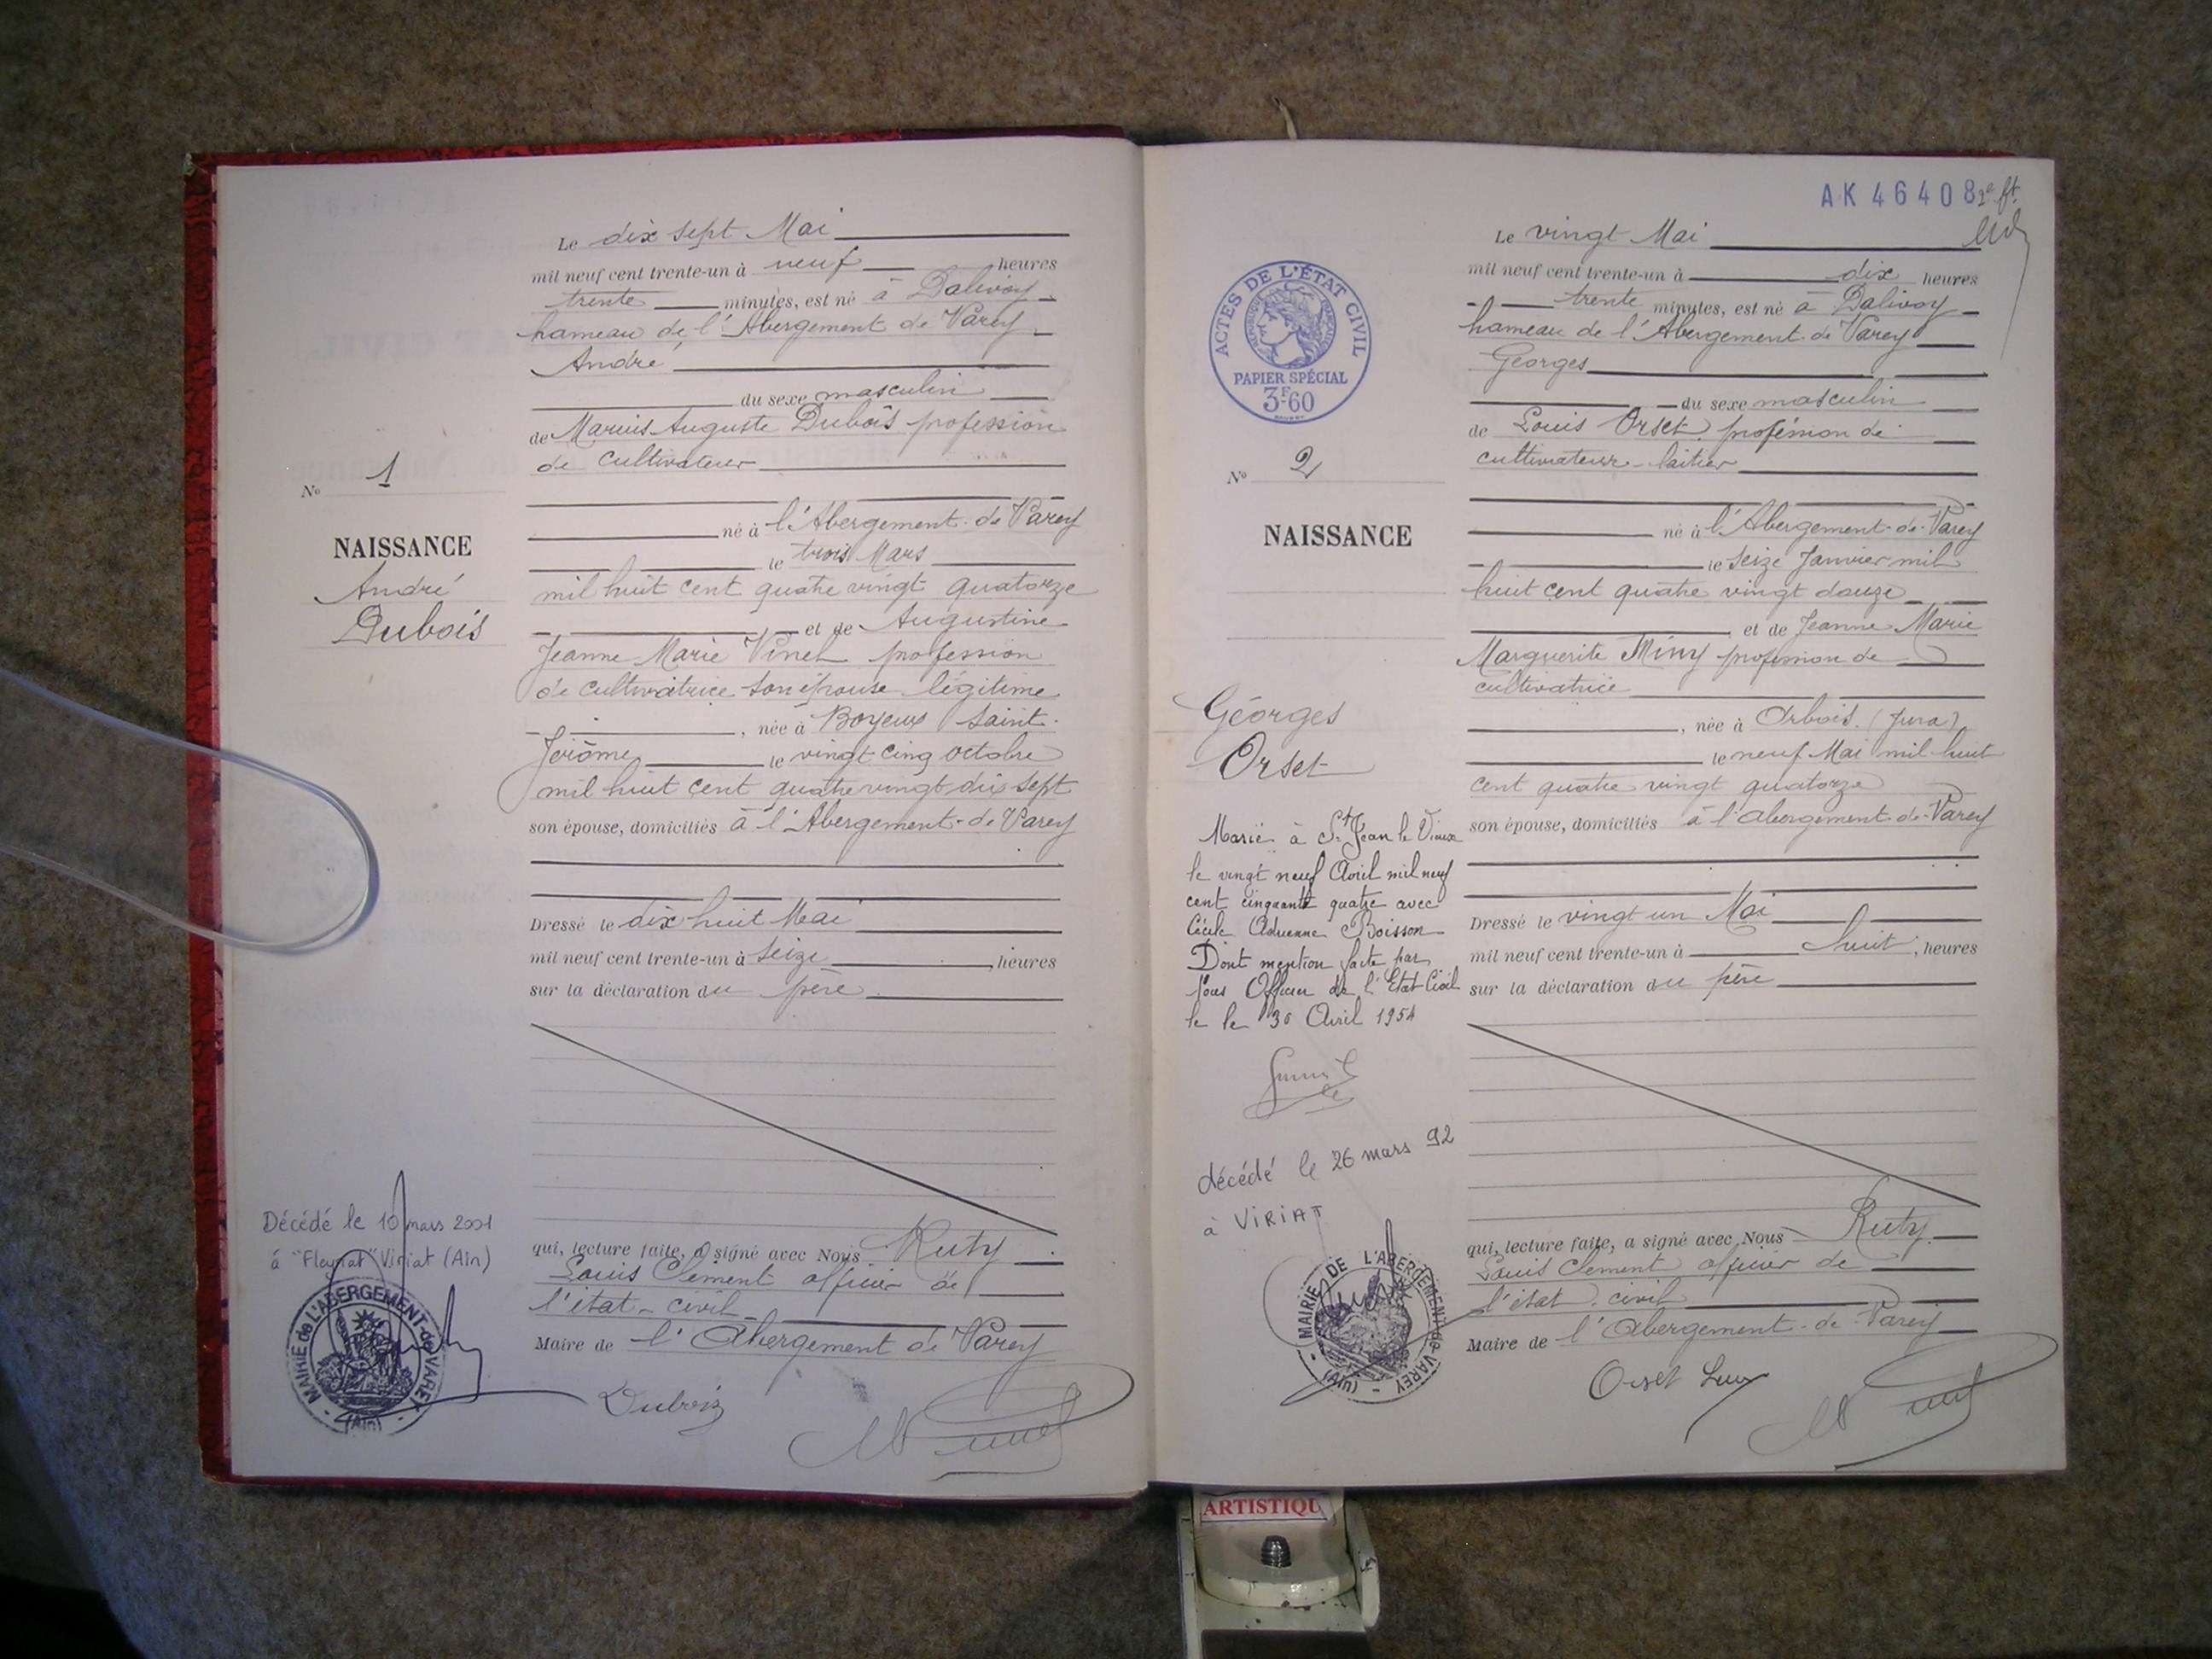 Le dix sept Mai
mil neuf cent trente-un à neuf heures
trente minutes, est né à Dalivoy
hameau de l'Abergement de Varey
André
du sexe masculin
de Marius Auguste Dubois profession
de cultivateur
N° 1
né à l'Abergement-de Varey
NAISSANCE
le trois Mars
André
mil huit cent quatre vingt quatorze
Dubois
et de Augustine
Jeanne Marie Vinel profession
de cultivatrice son épouse légitime
, née à Boyeux Saint-
Jérôme le vingt cinq octobre
mil huit cent quatre vingt dix sept
son épouse, domiciliés à l'Abergement-de Varey
Dressé le dix huit Mai
mil neuf cent trente-un à seize , heures
sur la déclaration du père
Décédé le 10 mars 2001
à "Fleyriat" Viriat (Ain)
qui, lecture faite, a signé avec Nous Ruty
Louis Clément officier de
l'état-civil
Maire de l'Abergement de Varey
MAIRIE de L'ABERGEMENT-de VAREY
(Ain)
Dubois
AK 46408
Le vingt Mai
mil neuf cent trente-un à dix heures
trente minutes, est né à Dalivoy
hameau de l'Abergement de Varey
Georges
du sexe masculin
de Louis Orset profession de
cultivateur-laitier
ACTES DE L'ÉTAT CIVIL
PAPIER SPÉCIAL
3F60
N° 2
né à l'Abergement-de-Varey
NAISSANCE
le seize Janvier mil
huit cent quatre vingt douze
et de Jeanne Marie
Marguerite Miny profession de
cultivatrice
Georges
Orset
, née à Arbois (Jura)
le neuf Mai mil huit
cent quatre vingt quatorze
son épouse, domiciliés à l'abergement-de-Varey
Marié à St Jean le Vieux
le vingt neuf Avril mil neuf
cent cinquante quatre avec
Cécile Adrienne Boisson
Dont mention faite par
Nous Officier de l'Etat Civil
le le 30 Avril 1954
Dressé le vingt un Mai
mil neuf cent trente-un à huit , heures
sur la déclaration du père
décédé le 26 mars 92
à VIRIAT
qui, lecture faite, a signé avec Nous Ruty
Louis Clément officier de
l'état civil
Maire de l'Abergement-de-Varey
MAIRIE DE L'ABERGEMENT de VAREY
(Ain)
Orset
ARTISTIQU